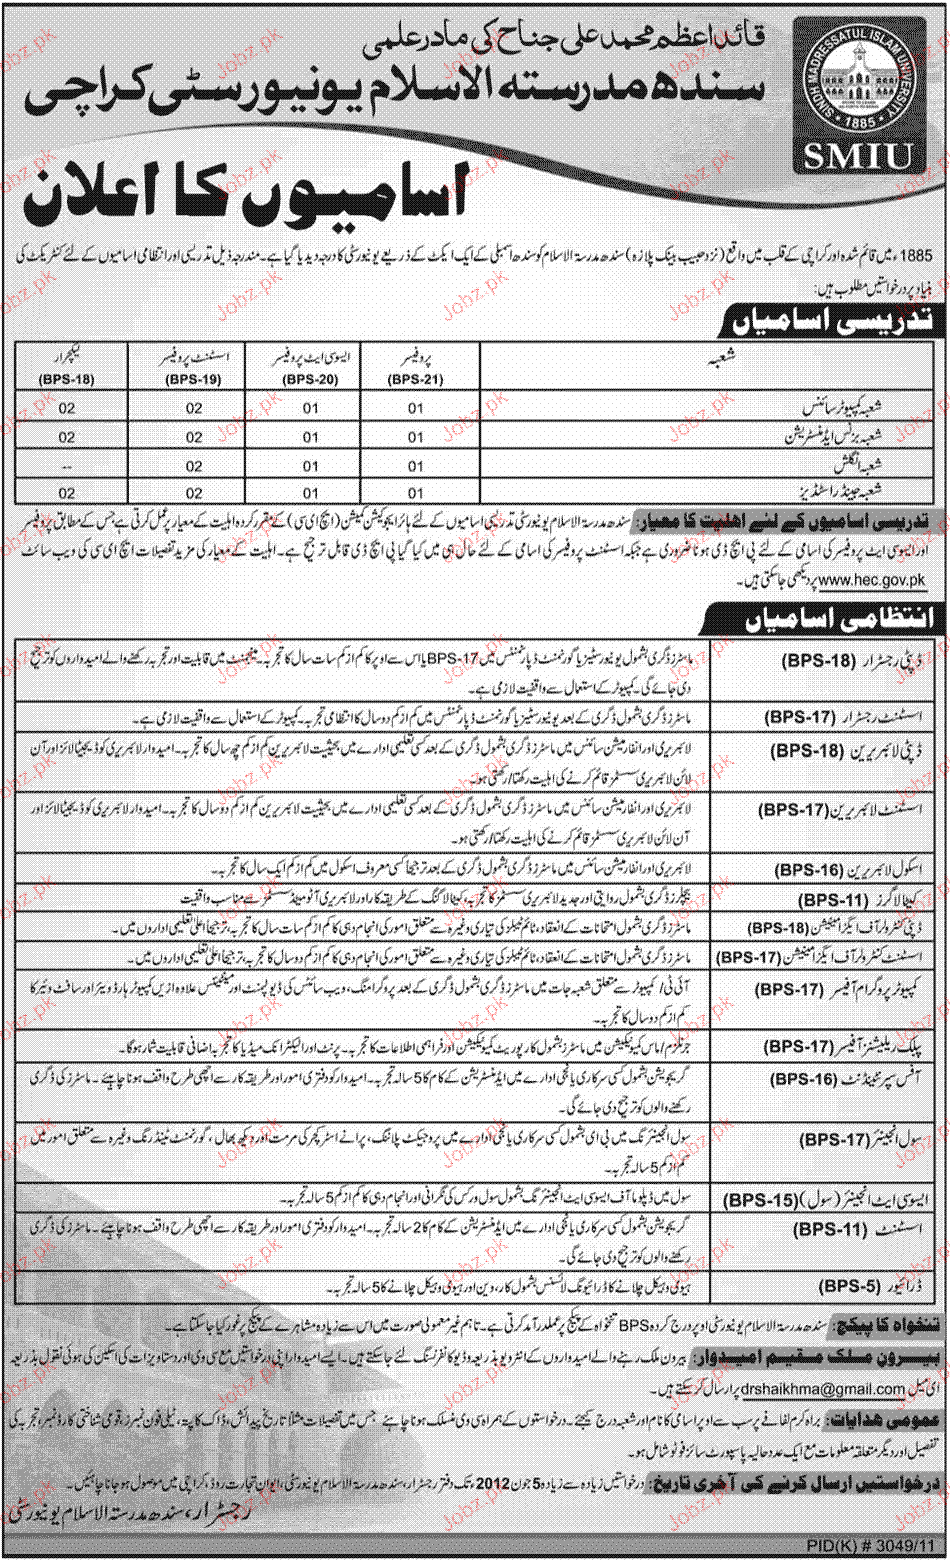 قائداعظم محمد علی جناح کی مادر علمی
سندھ مدرستہ الاسلام یونیورسٹی کراچی
SINDH MADRESSATUL ISLAM UNIVERSITY
1885
SMIU
اسامیوں کا اعلان
1885ء میں قائم شدہ اور کراچی کے قلب میں واقع (نزد حبیب بینک پلازہ) سندھ مدرستہ الاسلام کو سندھ اسمبلی کے ایک ایکٹ کے ذریعے یونیورسٹی کا درجہ دیدیا گیا ہے۔ مندرجہ ذیل تدریسی اور انتظامی اسامیوں کے لئے کنٹریکٹ کی
بنیاد پر درخواستیں مطلوب ہیں:
تدریسی اسامیاں
شعبہ پروفیسر (BPS-21) ایسوسی ایٹ پروفیسر (BPS-20) اسسٹنٹ پروفیسر (BPS-19) لیکچرار (BPS-18)
شعبہ کمپیوٹر سائنس 01 01 02 02
شعبہ بزنس ایڈمنسٹریشن 01 01 02 02
شعبہ انگلش 01 01 02 --
شعبہ جینڈر اسٹڈیز 01 01 02 02
تدریسی اسامیوں کے لئے اہلیت کا معیار: سندھ مدرستہ الاسلام یونیورسٹی تدریسی اسامیوں کے لئے ہائر ایجوکیشن کمیشن (ایچ ای سی) کے مقرر کردہ اہلیت کے معیار پر عمل کرتی ہے جس کے مطابق پروفیسر
اور ایسوسی ایٹ پروفیسر کی اسامی کے لئے پی ایچ ڈی ہونا ضروری ہے جبکہ اسسٹنٹ پروفیسر کی اسامی کے لئے حال ہی میں کیا گیا پی ایچ ڈی قابل ترجیح ہے۔ اہلیت کے معیار کی مزید تفصیلات ایچ ای سی کی ویب سائٹ
www.hec.gov.pk پر دیکھی جاسکتی ہیں۔
انتظامی اسامیاں
ڈپٹی رجسٹرار (BPS-18) ماسٹرز ڈگری بشمول یونیورسٹیز یا گورنمنٹ ڈپارٹمنٹس میں BPS-17 یا اس سے اوپر کا کم از کم سات سال کا تجربہ۔ مینجمنٹ میں قابلیت اور تجربہ رکھنے والے امیدواروں کو ترجیح
دی جائے گی۔ کمپیوٹر کے استعمال سے واقفیت لازمی ہے۔
اسسٹنٹ رجسٹرار (BPS-17) ماسٹرز ڈگری بشمول ڈگری کے بعد یونیورسٹیز یا گورنمنٹ ڈپارٹمنٹس میں کم از کم دو سال کا انتظامی تجربہ۔ کمپیوٹر کے استعمال سے واقفیت لازمی ہے۔
ڈپٹی لائبریرین (BPS-18) لائبریری اور انفارمیشن سائنس میں ماسٹرز ڈگری بشمول ڈگری کے بعد کسی تعلیمی ادارے میں بحیثیت لائبریرین کم از کم چھ سال کا تجربہ۔ امیدوار لائبریری کو ڈیجیٹلائز اور آن
لائن لائبریری سسٹمز قائم کرنے کی اہلیت رکھتا/رکھتی ہو۔
اسسٹنٹ لائبریرین (BPS-17) لائبریری اور انفارمیشن سائنس میں ماسٹرز ڈگری بشمول ڈگری کے بعد کسی تعلیمی ادارے میں بحیثیت لائبریرین کم از کم دو سال کا تجربہ۔ امیدوار لائبریری کو ڈیجیٹلائز اور
آن لائن لائبریری سسٹمز قائم کرنے کی اہلیت رکھتا/رکھتی ہو۔
اسکول لائبریرین (BPS-16) لائبریری اور انفارمیشن سائنس میں ماسٹرز ڈگری بشمول ڈگری کے بعد ترجیحاً کسی معروف اسکول میں کم از کم ایک سال کا تجربہ۔
کیٹالاگرز (BPS-11) بیچلرز ڈگری بشمول روایتی اور جدید لائبریری سسٹمز کا تجربہ، کیٹالاگنگ کے طریقہ کار اور لائبریری آٹومیٹڈ سسٹمز سے مناسب واقفیت
ڈپٹی کنٹرولر آف ایگزامینیشن (BPS-18) ماسٹرز ڈگری بشمول امتحانات کے انعقاد، ٹائم ٹیبلز کی تیاری وغیرہ سے متعلق امور کی انجام دہی کا کم از کم سات سال کا تجربہ، ترجیحاً اعلیٰ تعلیمی اداروں میں۔
اسسٹنٹ کنٹرولر آف ایگزامینیشن (BPS-17) ماسٹرز ڈگری بشمول امتحانات کے انعقاد، ٹائم ٹیبلز کی تیاری وغیرہ سے متعلق امور کی انجام دہی کا کم از کم دو سال کا تجربہ، ترجیحاً اعلیٰ تعلیمی اداروں میں۔
کمپیوٹر پروگرام آفیسر (BPS-17) آئی ٹی/ کمپیوٹر سے متعلق شعبہ جات میں ماسٹرز ڈگری بشمول ڈگری کے بعد پروگرامنگ، ویب سائٹس کی ڈیولپمنٹ اور مینٹیننس علاوہ ازیں کمپیوٹر ہارڈ ویئر اور سافٹ ویئر کا
کم از کم دو سال کا تجربہ۔
پبلک ریلیشنز آفیسر (BPS-17) جرنلزم/ماس کمیونیکیشن میں ماسٹرز بشمول کارپوریٹ کمیونیکیشن اور فراہمی اطلاعات کا تجربہ۔ پرنٹ اور الیکٹرانک میڈیا کا تجربہ اضافی قابلیت شمار ہوگا۔
آفس سپرنٹینڈنٹ (BPS-16) گریجویشن بشمول کسی سرکاری یا نجی ادارے میں ایڈمنسٹریشن کے کام کا 5 سالہ تجربہ۔ امیدوار کو دفتری امور اور طریقہ کار سے اچھی طرح واقف ہونا چاہیئے۔ ماسٹرز کی ڈگری
رکھنے والوں کو ترجیح دی جائے گی۔
سول انجینئر (BPS-17) سول انجینئرنگ میں بی ای بشمول کسی سرکاری یا نجی ادارے میں پروجیکٹ پلاننگ، پرانے اسٹرکچر کی مرمت اور دیکھ بھال، گورنمنٹ ٹینڈرنگ وغیرہ سے متعلق امور میں
کم از کم 5 سالہ تجربہ۔
ایسوسی ایٹ انجینئر (سول) (BPS-15) سول میں ڈپلوما آف ایسوسی ایٹ انجینئرنگ بشمول سول ورکس کی نگرانی اور انجام دہی کا کم از کم 5 سالہ تجربہ۔
اسسٹنٹ (BPS-11) گریجویشن بشمول کسی سرکاری یا نجی ادارے میں ایڈمنسٹریشن کے کام کا 2 سالہ تجربہ۔ امیدوار کو دفتری امور اور طریقہ کار سے اچھی طرح واقف ہونا چاہیئے۔ ماسٹرز کی ڈگری
رکھنے والوں کو ترجیح دی جائے گی۔
ڈرائیور (BPS-5) ہیوی وہیکل چلانے کا ڈرائیونگ لائسنس بشمول کار، وین اور ہیوی وہیکل چلانے کا 5 سالہ تجربہ۔
تنخواہ کا پیکج: سندھ مدرستہ الاسلام یونیورسٹی اوپر درج کردہ BPS تنخواہ کے پیکج پر عملدرآمد کرتی ہے۔ تاہم غیر معمولی صورت میں اس سے زیادہ مشاہرے کے پیکج پر غور کیا جاسکتا ہے۔
بیرون ملک مقیم امیدوار: بیرون ملک رہنے والے امیدواروں کے انٹرویو بذریعہ وڈیو کانفرنسنگ لئے جاسکتے ہیں۔ ایسے امیدوار اپنی درخواستیں مع سی وی اور دستاویزات کی اسکین کی ہوئی نقول بذریعہ
ای میل drshaikhma@gmail.com پر ارسال کرسکتے ہیں۔
عمومی ہدایات: براہ کرم لفافے پر سب سے اوپر اسامی کا نام اور شعبہ درج کیجئے۔ درخواستوں کے ہمراہ سی وی منسلک ہونا چاہئے جس میں تفصیلات مثلاً تاریخ پیدائش، ڈاک کا پتہ، ٹیلی فون نمبرز، قومی شناختی کارڈ نمبر، تجربہ کی
تفصیل اور دیگر متعلقہ معلومات مع ایک عدد حالیہ پاسپورٹ سائز فوٹو شامل ہو۔
درخواستیں ارسال کرنے کی آخری تاریخ: درخواستیں زیادہ سے زیادہ 5 جون 2012ء تک دفتر رجسٹرار، سندھ مدرستہ الاسلام یونیورسٹی، ایوان تجارت روڈ، کراچی میں موصول ہو جانا چاہئیں۔
رجسٹرار، سندھ مدرستہ الاسلام یونیورسٹی
PID(K) # 3049/11
Jobz.pk